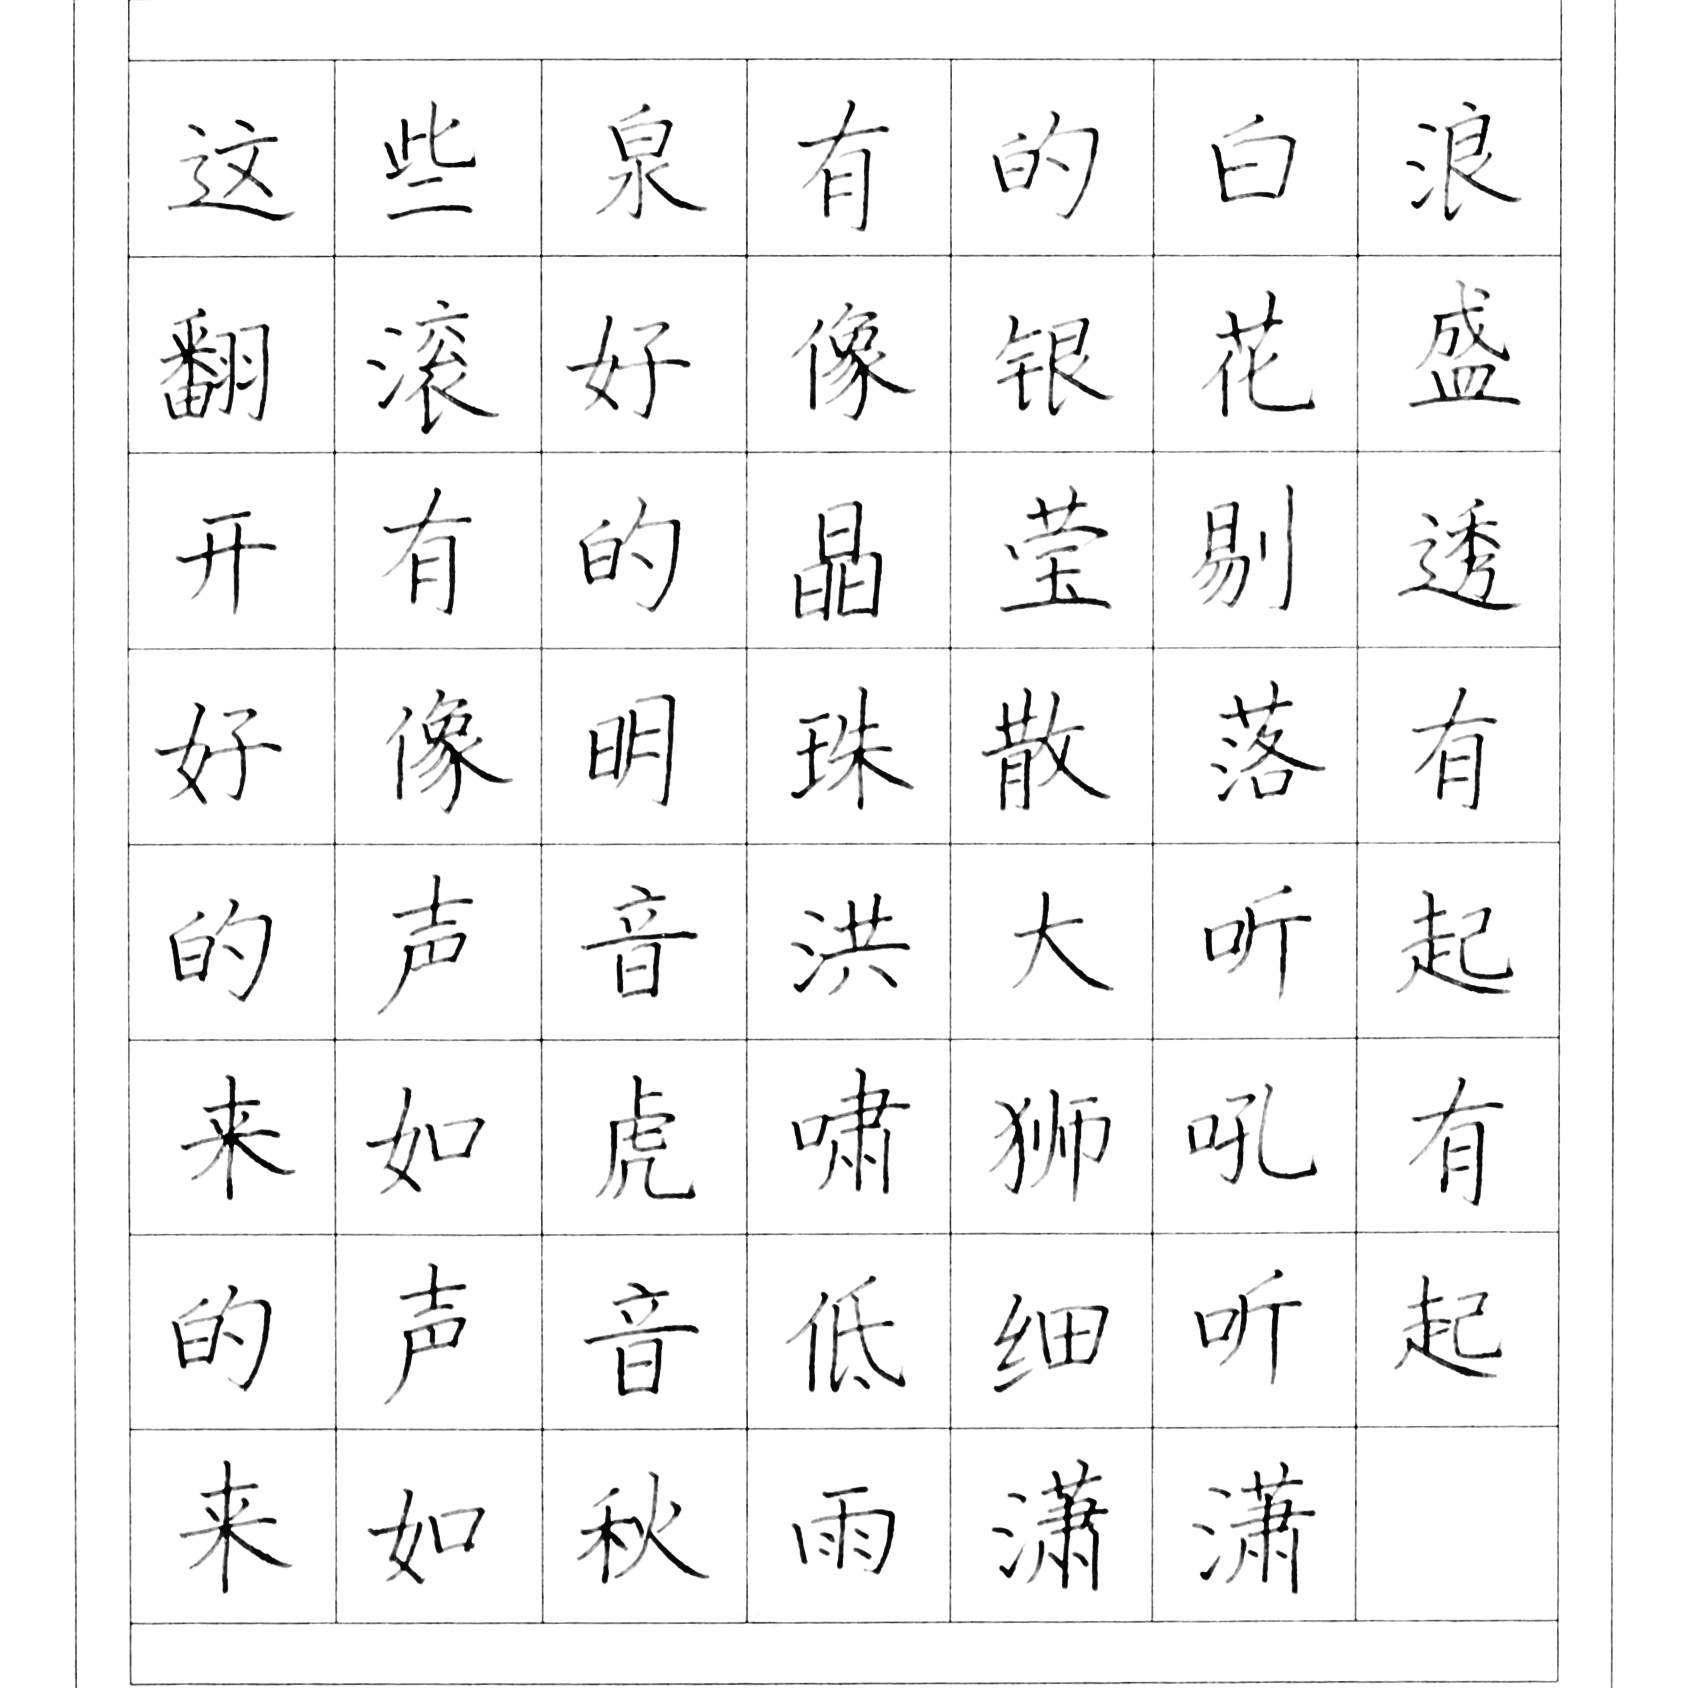 这些泉有的白浪
翻滚好像银花盛
开有的晶莹剔透
好像明珠散落有
的声音洪大听起
来如虎啸狮吼有
的声音低细听起
来如秋雨潇潇